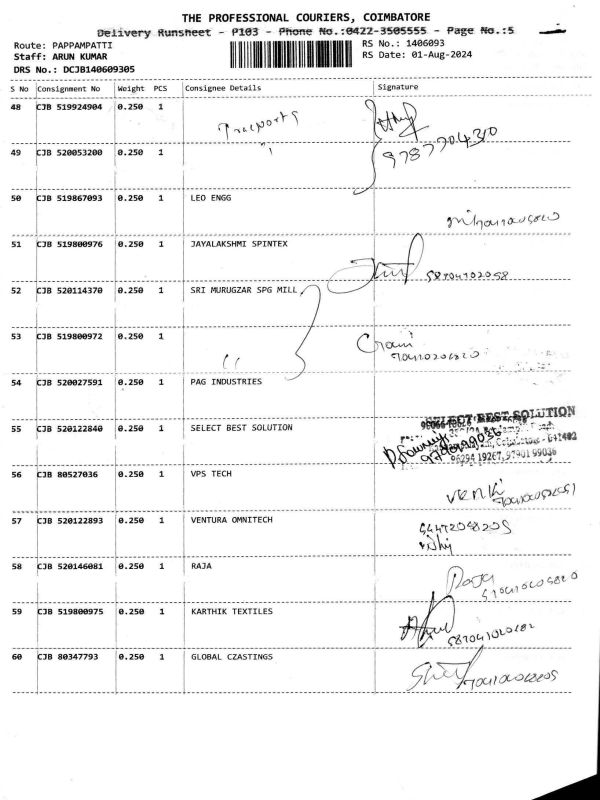 THE PROFESSIONAL COURIERS, COIMBATORE
Delivery Runsheet - P103 - Phone No.:0422-3505555 - Page No.:5
Route: PAPPAMPATTI
RS No.: 1406093
Staff: ARUN KUMAR
RS Date: 01-Aug-2024
DRS No.: DCJB140609305
S No Consignment No Weight PCS Consignee Details Signature
48 CJB 519924904 0.250 1
49 CJB 520053200 0.250 1
9787704310
50 CJB 519867093 0.250 1 LEO ENGG
51 CJB 519800976 0.250 1 JAYALAKSHMI SPINTEX
52 CJB 520114370 0.250 1 SRI MURUGZAR SPG MILL
53 CJB 519800972 0.250 1
54 CJB 520027591 0.250 1 PAG INDUSTRIES
55 CJB 520122840 0.250 1 SELECT BEST SOLUTION
SELECT BEST SOLUTION
Coimbatore - 641402
96294 19267, 97901 99036
56 CJB 80527036 0.250 1 VPS TECH
57 CJB 520122893 0.250 1 VENTURA OMNITECH
58 CJB 520146081 0.250 1 RAJA
Raja
59 CJB 519800975 0.250 1 KARTHIK TEXTILES
60 CJB 80347793 0.250 1 GLOBAL CZASTINGS